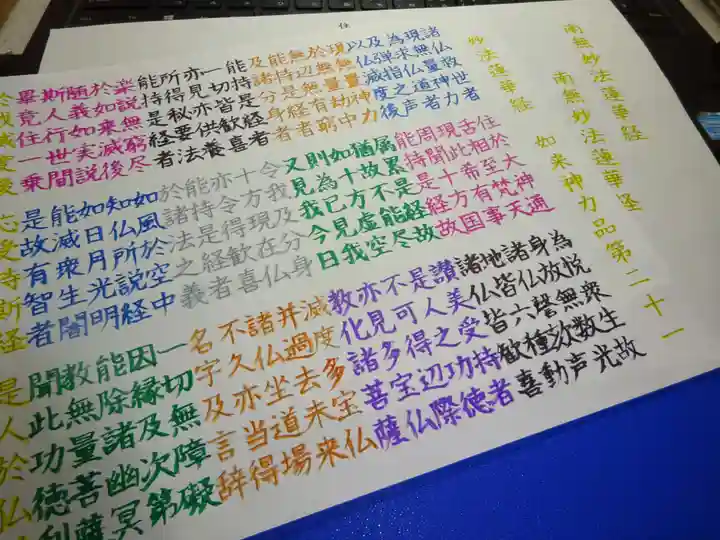 南無妙法蓮華経
南無妙法蓮華経
妙法蓮華経
如来神力品第二十一
諸仏救世者
住於大神通
為悦衆生故
現無量神力
舌相至梵天
身放無数光
為求仏道者
現此希有事
諸仏謦欬声
及弾指之声
周聞十方国
地皆六種動
以仏滅度後
能持是経故
諸仏皆歓喜
現無量神力
属累是経故
讃美受持者
於無量劫中
猶故不能尽
是人之功徳
無辺無有窮
如十方虚空
不可得辺際
能持是経者
則為已見我
亦見多宝仏
及諸分身者
又見我今日
教化諸菩薩
能持是経者
令我及分身
滅度多宝仏
一切皆歓喜
十方現在仏
并過去未来
亦見亦供養
亦令得歓喜
諸仏坐道場
所得秘要法
能持是経者
不久亦当得
能持是経者
於諸法之義
名字及言辞
楽説無窮尽
如風於空中
一切無障礙
於如来滅後
知仏所説経
因縁及次第
随義如実説
如日月光明
能除諸幽冥
斯人行世間
能滅衆生闇
教無量菩薩
畢竟住一乗
是故有智者
聞此功徳利
於我滅度後
応受持斯経
是人於仏